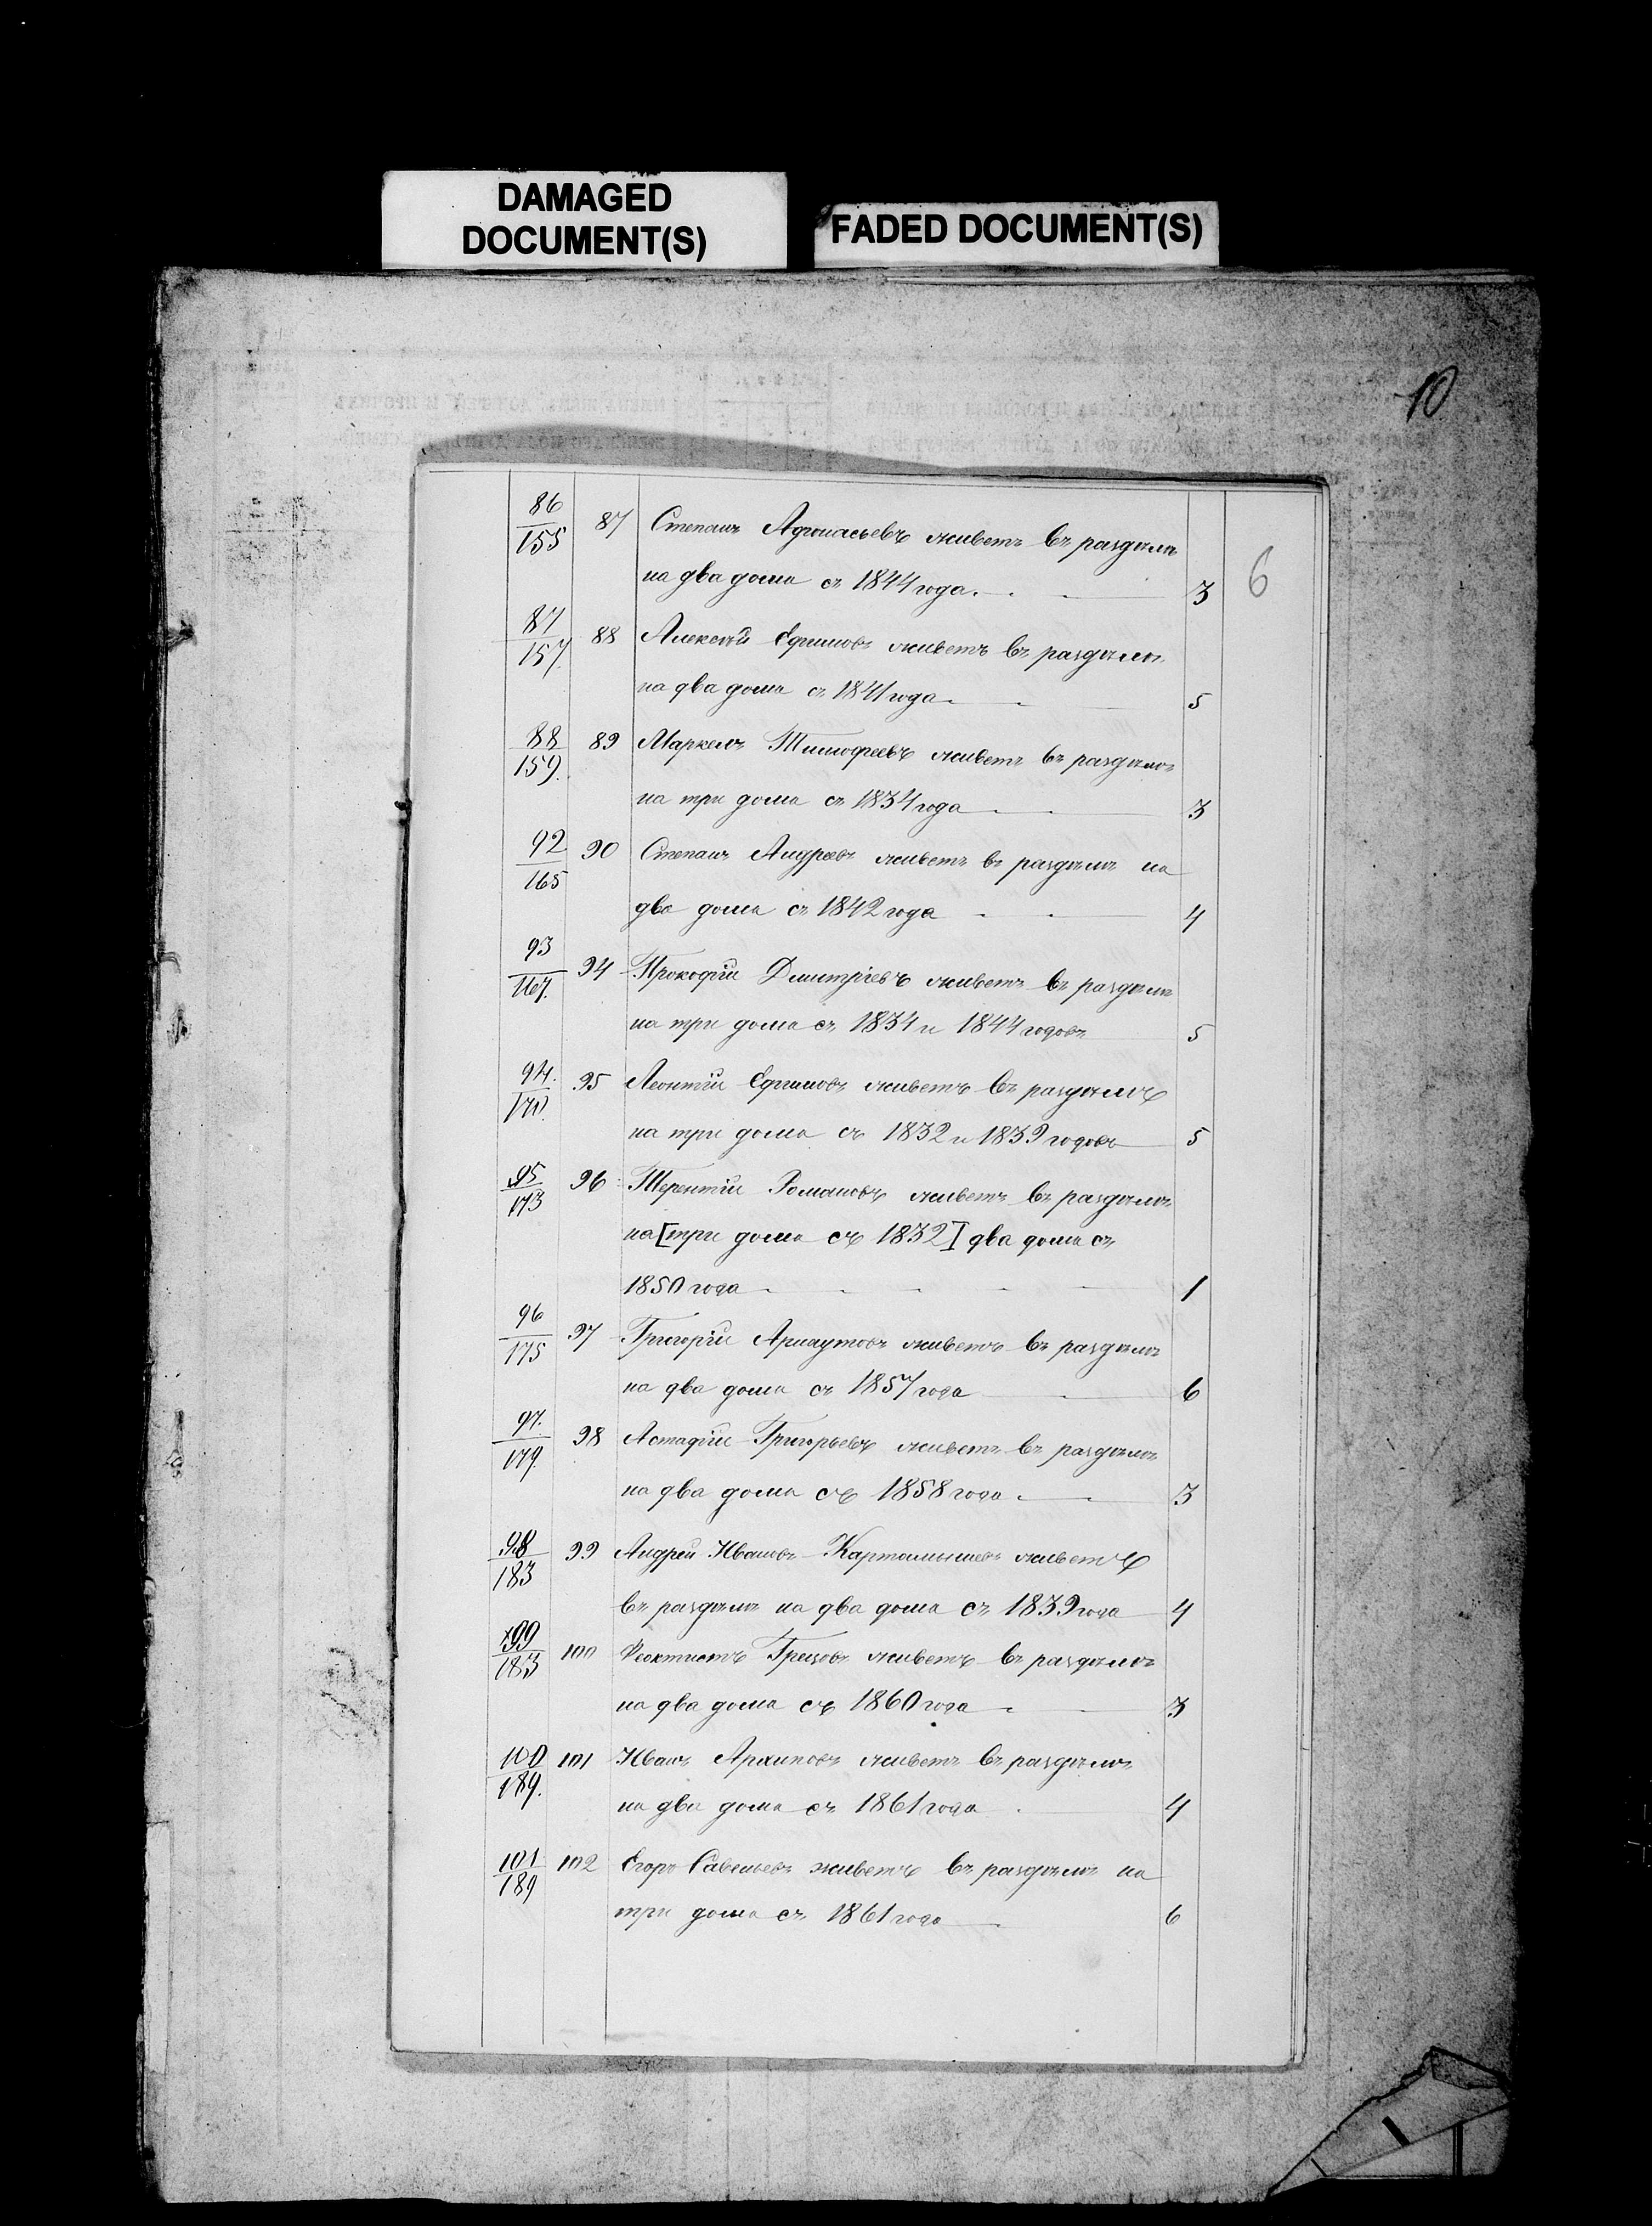 DAMAGED
DOCUMENT(S)
FADED DOCUMENT(S)
10
6
86
155
87 Степанъ Афонасьевъ живетъ въ раздѣлѣ
на два дома съ 1844 года. 3
87
157
88 Алексѣй Ефимовъ живетъ въ раздѣлѣ
на два дома съ 1841 года 5
88
159.
89 Маркелъ Тимофеевъ живетъ въ раздѣлѣ
на три дома съ 1834 года 3
92
165
90 Степанъ Андреевъ живетъ въ раздѣлѣ на
два дома съ 1842 года 4
93
167.
94 Прокофій Дмитріевъ живетъ въ раздѣлѣ
на три дома съ 1834 и 1844 годовъ 5
94.
170.
95 Леонтій Ефимовъ живетъ въ раздѣлѣ
на три дома съ 1832 и 1839 годовъ 5
95
173
96 Терентій Романовъ живетъ въ раздѣлѣ
на [три дома съ 1832] два дома съ
1850 года 1
96
175
97 Григорій Арнаутовъ живетъ въ раздѣлѣ
на два дома съ 1857 года 6
97.
179.
98 Астафій Григорьевъ живетъ въ раздѣлѣ
на два дома съ 1858 года 3
98
183
99 Андрей Ивановъ Картамышевъ живетъ
въ раздѣлѣ на два дома съ 1839 года 4
99
183
100 Феоктистъ Грецовъ живетъ въ раздѣлѣ
на два дома съ 1860 года 3
100
189.
101 Иванъ Архиповъ живетъ въ раздѣлѣ
на два дома съ 1861 года 4
101
189
102 Егоръ Савельевъ живетъ въ раздѣлѣ на
три дома съ 1861 года 6